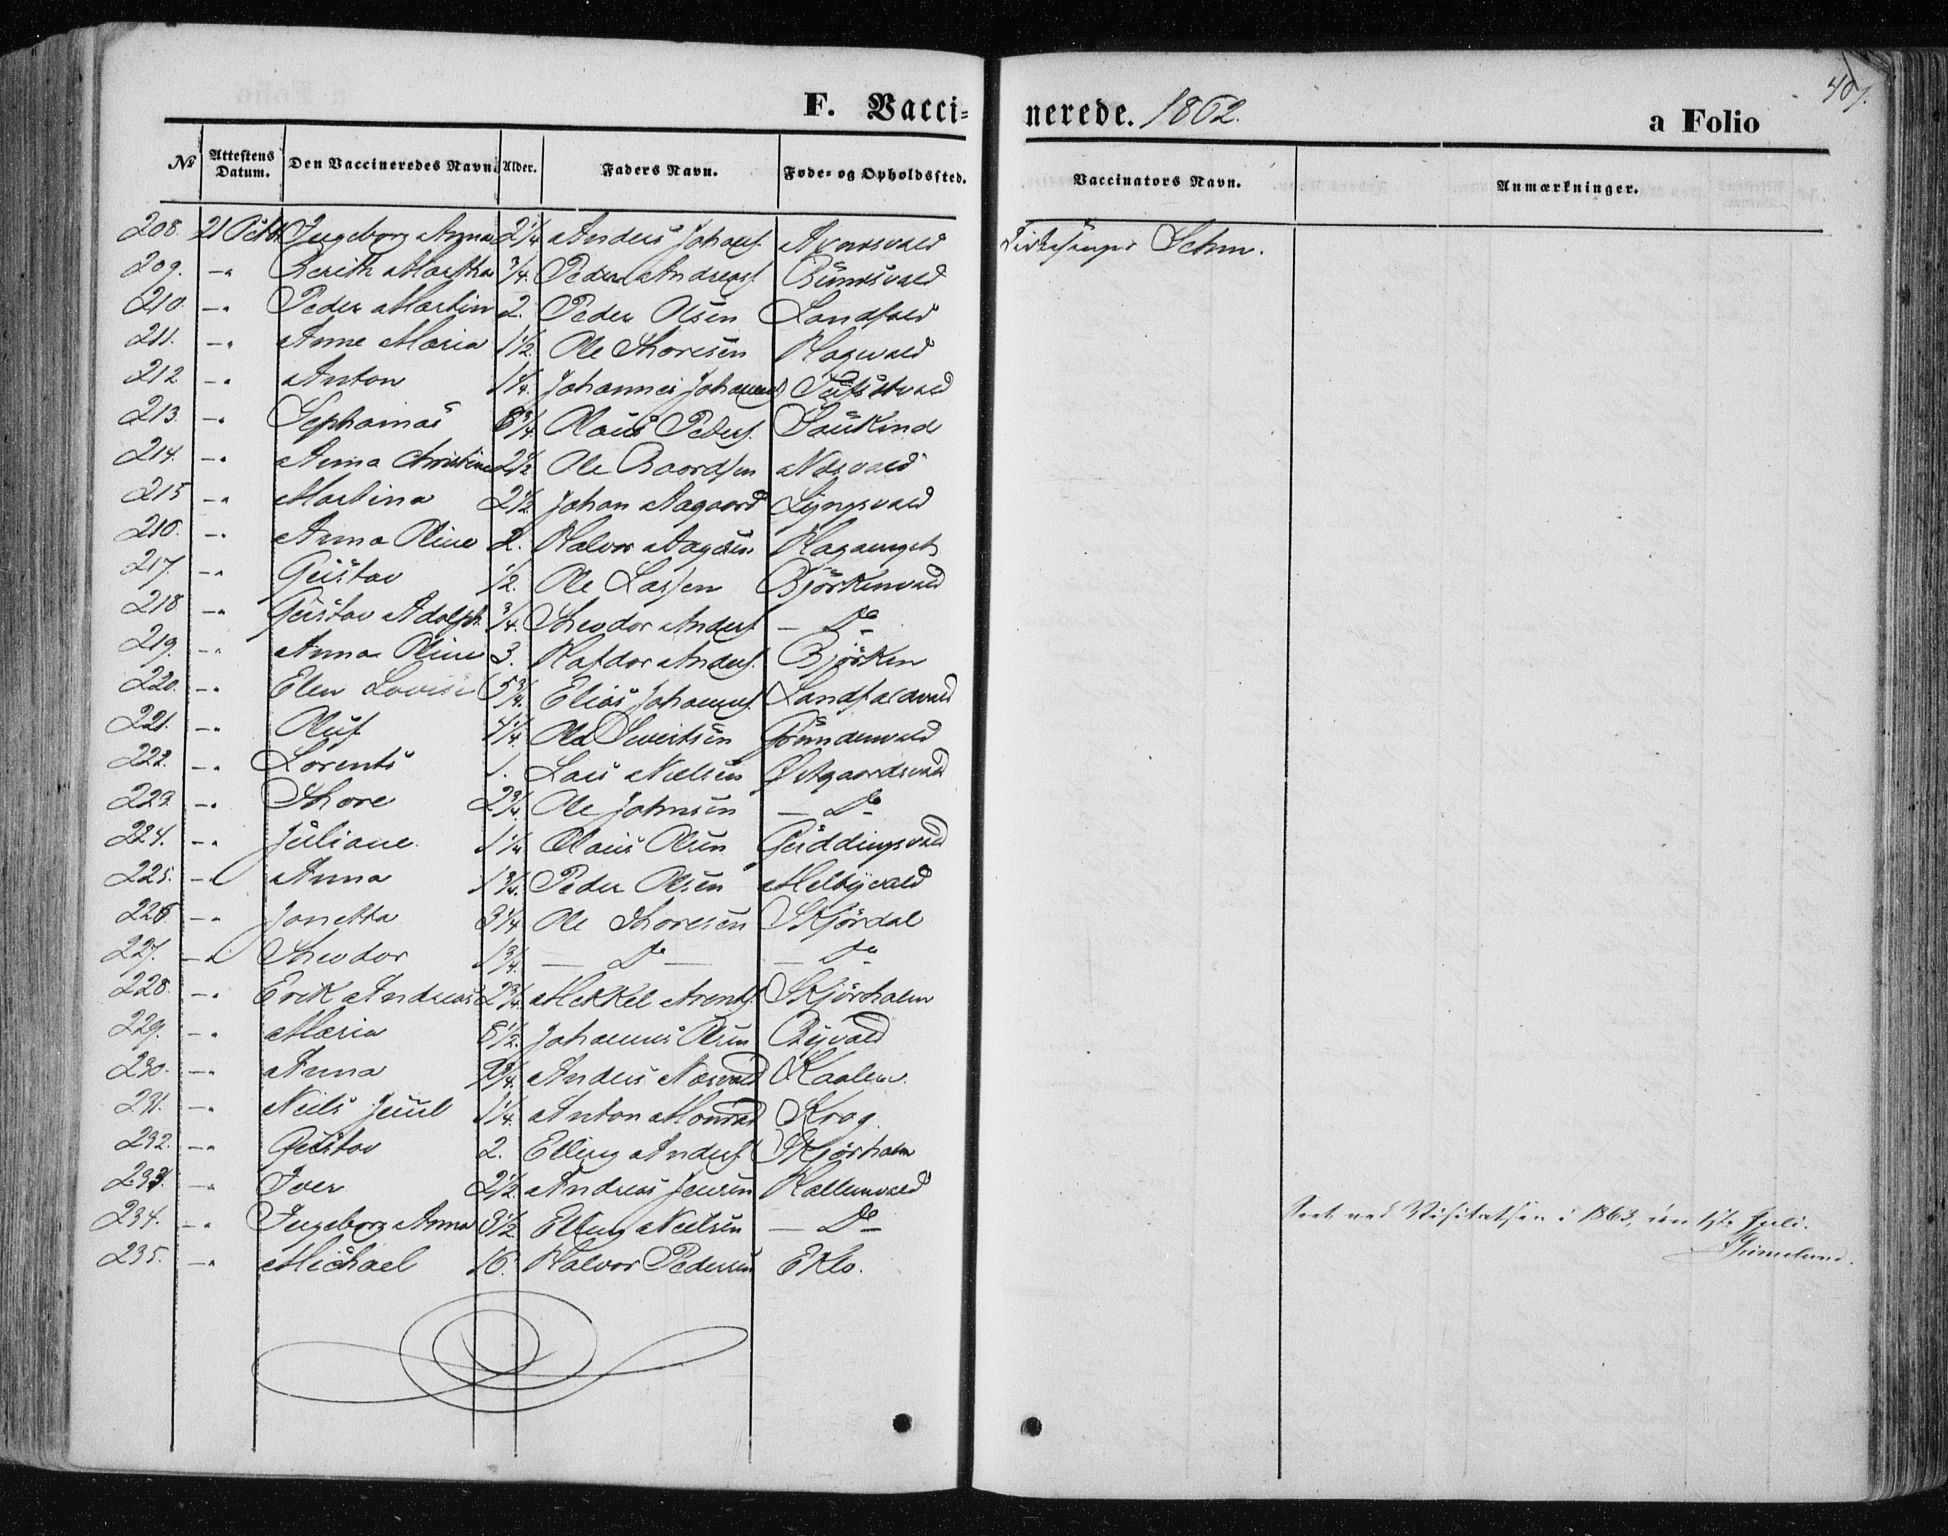 407.
F. Vacci- nerede. 1862. a Folio
No Attestens Datum. Den Vaccineredes Navn. Alder. Faders Navn. Føde- og Opholdssted. Vaccinators Navn. Anmærkninger.
208. 21 Octb. Ingeborg Anna 2 1/4 Anders Johans. Kirkesanger Schm.
209. -" Berith Martha 3/4. Peder Andreas.
210. -" Peder Martin 2. Peder Olsen Landfald
211. -" Anne Maria 1 1/2. Ole Thoresen Hagvald
212 -" Anton 1 1/4. Johannes
213. -" Sephanias Olaus Peders. Saukind
214. -" Anna Christine 2 1/2. Ole Baardsen Næsvald
215 -" Martina 2 1/2. Johan Aagaard Lyngsvald
216. -" Anna Oline 2. Halvor Aagesen Hagaenget
217. -" Gustav 1/2. Ole Larsen Björkenvald
218 -" Gustav Adolph. 3/4. Theodor Anders. - Do -
219. -" Anna Oline 3. Haldor Anders. Björken
220. -" Elen Lovise 5 3/4. Elias Johanns. Landfaldvald
221. -" Oluf 4 1/4. Ole Sivertsen Grundenvald
222. -" Lorents 1. Lars Nielsen Østgaardsvald
223. -" Thore 2 3/4. Ole Johnsen - Do -
224. -" Juliane. 1 1/4 Olaus Olsen Geiddingsvald
225. -" Anna 1 3/4. Peder Olsen Melbyvald
226. -" Jonetta 3 1/4 Ole Thoresen Skjördal
227. -" Theodor 1 3/4. - Do - - Do -
228. -" Erik Andreas 2 3/4. Mekkel Arents. Skjörholm
229. -" Maria 8 1/2. Johannes Olsen Byvald
230. -" Anna Anders Næsvald Kaalen.
231. -" Neils Juul 1 1/4. Anton Monrad Krog.
232. -" Gustav 2. Elling Anders. Skjörholm
233. -" Iver 2 1/2. Andreas Jensen Hallemvald
234. -" Ingeborg Anna 3 1/2. Elling Neilsen - Do -
235. -" Michael 16. Halvor Pedersen Eklo.
Seet ved Visitatsen i 1863, den 1ste Juli.
Grimelund.